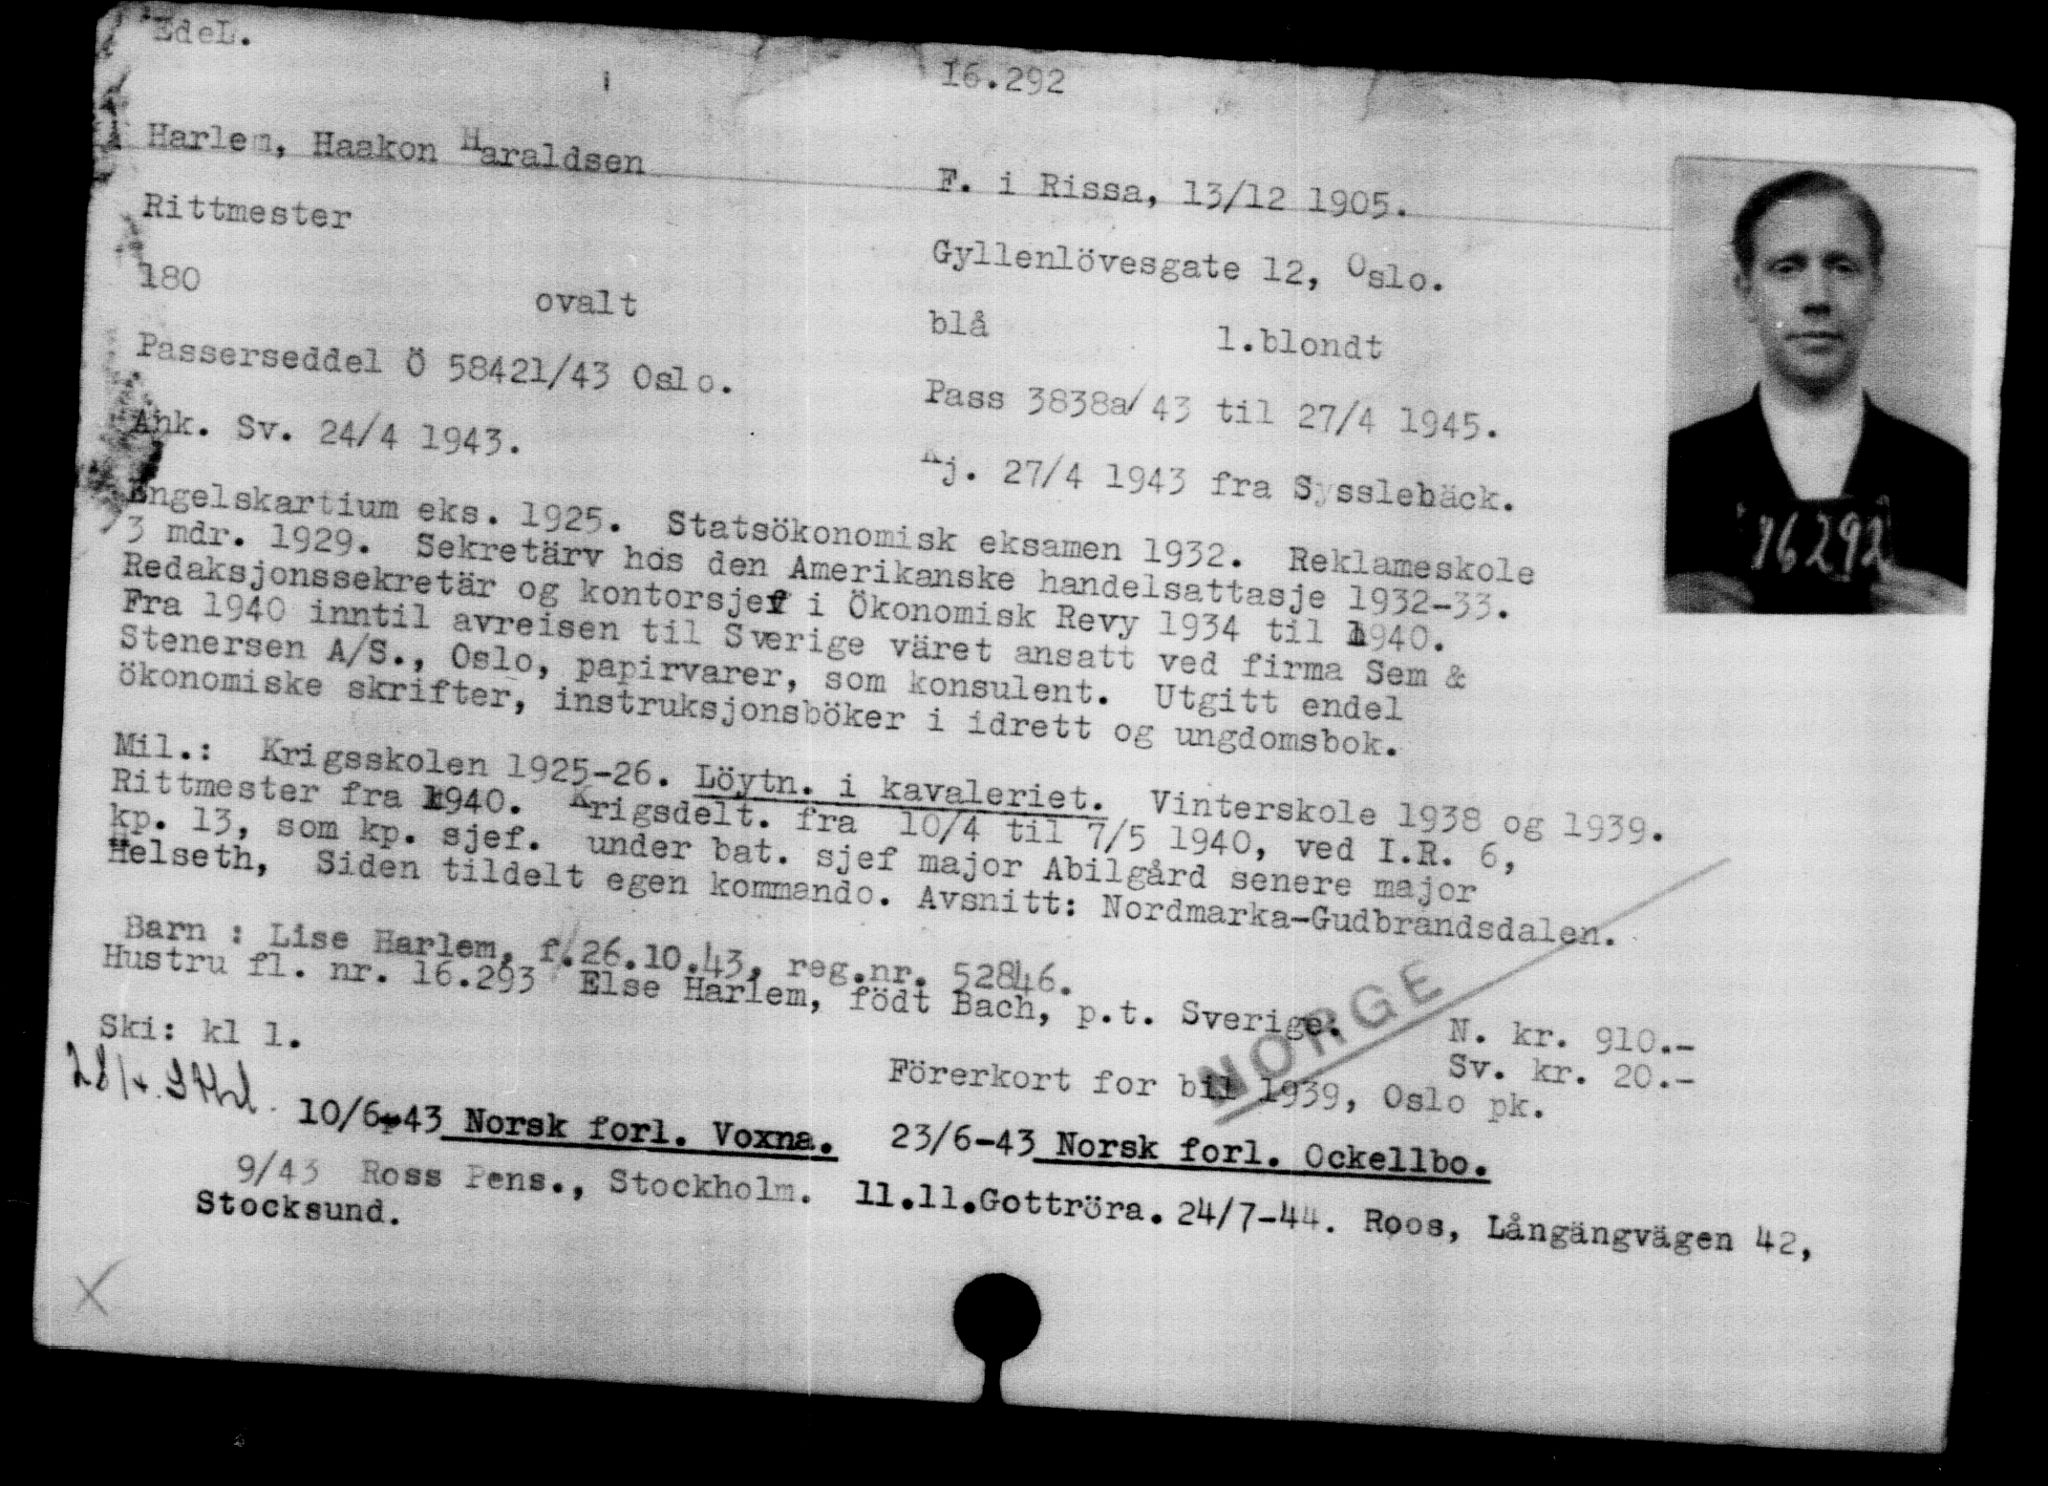 EdeL.
16.292
Harlem, Haakon Haraldsen
F. i Rissa, 13/12 1905.
Rittmester
Gyllenlövesgate 12, Oslo.
180 ovalt
blå l.blondt
Passerseddel Ö 58421/43 Oslo.
Pass 3838a/43 til 27/4 1945.
Ank. Sv. 24/4 1943.
Kj. 27/4 1943 fra Sysslebäck.
Engelskartium eks. 1925. Statsökonomisk eksamen 1932. Reklameskole
3 mdr. 1929. Sekretärv hos den Amerikanske handelsattasje 1932-33.
Redaksjonssekretär og kontorsjef i Ökonomisk Revy 1934 til 1940.
Fra 1940 inntil avreisen til Sverige väret ansatt ved firma Sem &
Stenersen A/S., Oslo, papirvarer, som konsulent. Utgitt endel
ökonomiske skrifter, instruksjonsböker i idrett og ungdomsbok.
Mil.: Krigsskolen 1925-26. Löytn. i kavaleriet. Vinterskole 1938 og 1939.
Rittmester fra 1940. Krigsdelt. fra 10/4 til 7/5 1940, ved I.R. 6,
kp. 13, som kp. sjef. under bat. sjef major Abilgård senere major
Helseth, Siden tildelt egen kommando. Avsnitt: Nordmarka-Gudbrandsdalen.
Barn : Lise Harlem, f.26.10.43, reg.nr. 52846.
Hustru fl. nr. 16.293 Else Harlem, födt Bach, p.t. Sverige.
NORGE
N. kr. 910.-
Ski: kl 1.
Sv. kr. 20.-
Förerkort for bil 1939, Oslo pk.
10/6-43 Norsk forl. Voxna. 23/6-43 Norsk forl. Ockellbo.
9/43 Ross Pens., Stockholm. 11.11.Gottröra. 24/7-44. Roos, Långängvägen 42,
Stocksund.
X
16292